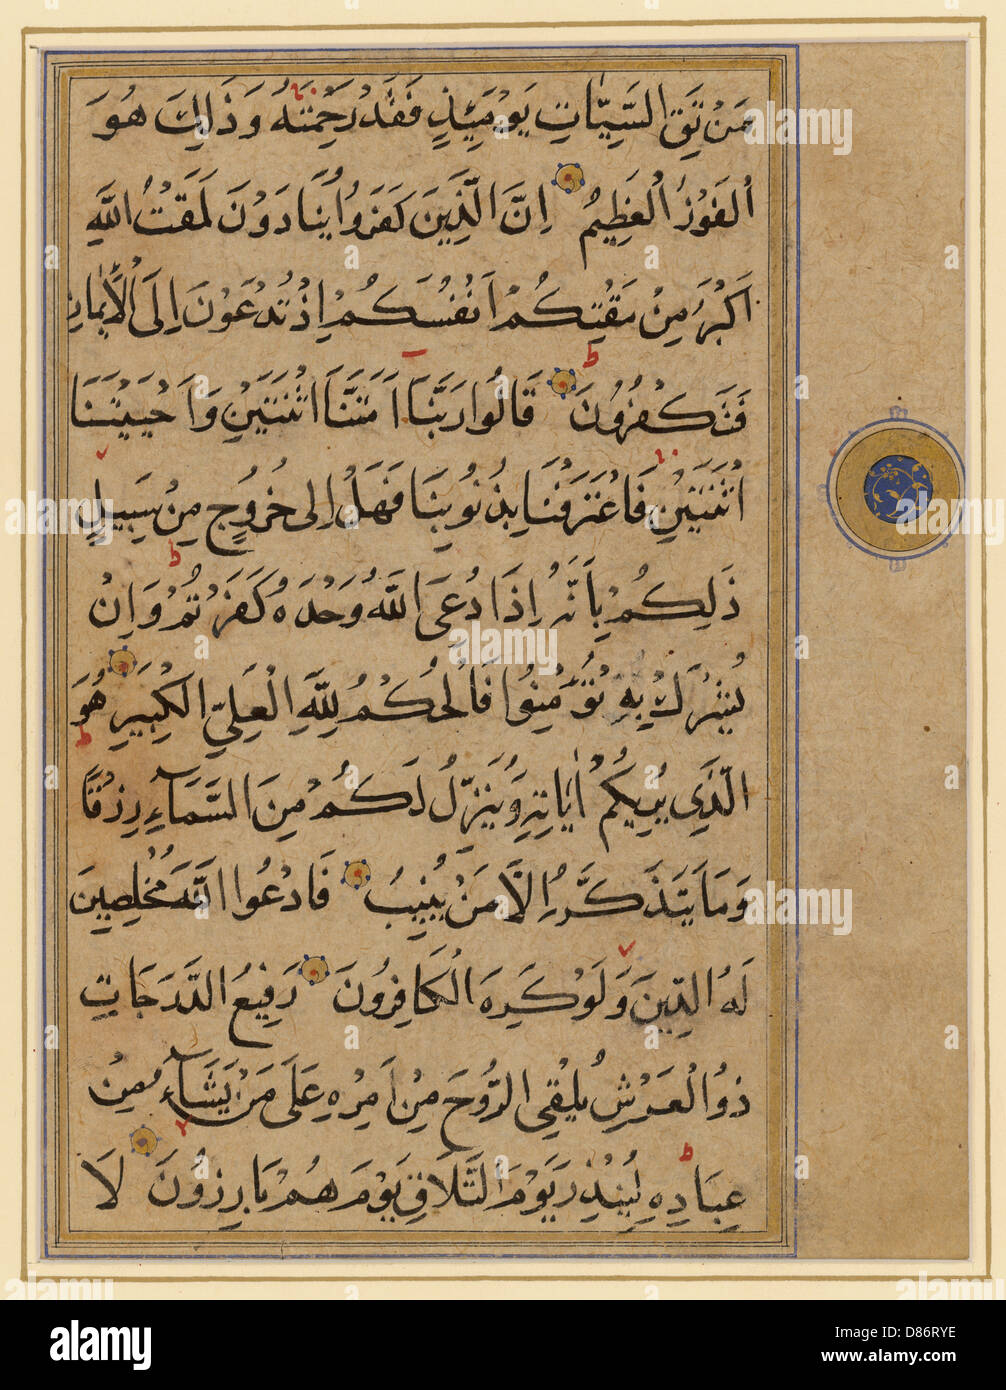 مَنْ تَقِ السَّيِّئَاتِ يَوْمَئِذٍ فَقَدْ رَحِمْتَهُ وَذَلِكَ هُوَ
الْفَوْزُ الْعَظِيمُ اِنَّ الَّذِينَ كَفَرُوا يُنَادَوْنَ لَمَقْتُ اللَّهِ
اَكْبَرُ مِنْ مَقْتِكُمْ اَنْفُسَكُمْ اِذْ تُدْعَوْنَ اِلَى الْاِيمَانِ
فَتَكْفُرُونَ قَالُوا رَبَّنَا اَمَتَّنَا اثْنَتَيْنِ وَاَحْيَيْتَنَا
اثْنَتَيْنِ فَاعْتَرَفْنَا بِذُنُوبِنَا فَهَلْ اِلَى خُرُوجٍ مِنْ سَبِيلٍ
ذَلِكُمْ بِاَنَّهُ اِذَا دُعِيَ اللَّهُ وَحْدَهُ كَفَرْتُمْ وَاِنْ
يُشْرَكْ بِهِ تُؤْمِنُوا فَالْحُكْمُ لِلَّهِ الْعَلِيِّ الْكَبِيرِ هُوَ
الَّذِي يُرِيكُمْ اٰيَاتِهِ وَيُنَزِّلُ لَكُمْ مِنَ السَّمَآءِ رِزْقًا
وَمَا يَتَذَكَّرُ اِلَّا مَنْ يُنِيبُ فَادْعُوا اللَّهَ مُخْلِصِينَ
لَهُ الدِّينَ وَلَوْ كَرِهَ الْكَافِرُونَ رَفِيعُ الدَّرَجَاتِ
ذُو الْعَرْشِ يُلْقِي الرُّوحَ مِنْ اَمْرِهِ عَلَى مَنْ يَشَآءُ مِنْ
عِبَادِهِ لِيُنْذِرَ يَوْمَ التَّلَاقِ يَوْمَ هُمْ بَارِزُونَ لَا
alamy
Image ID: D86RYE
www.alamy.com